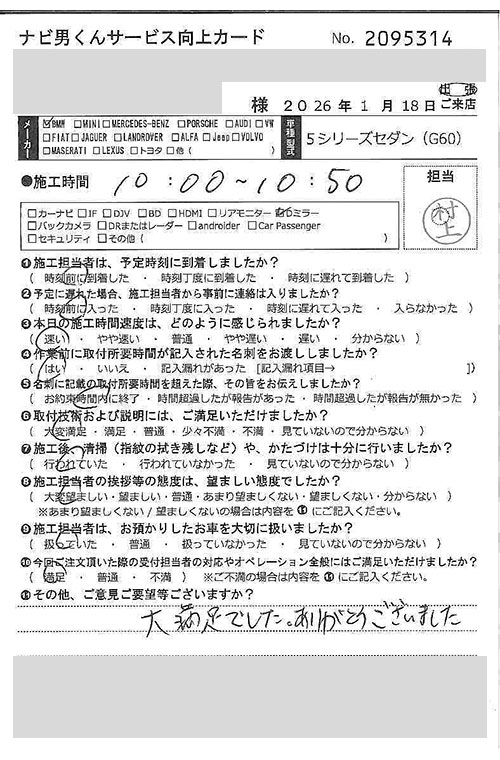 ナビ男くんサービス向上カード No. 2095314
様 2026年1月18日 出張 ご来店
メーカー ☑BMW □MINI □MERCEDES-BENZ □PORSCHE □AUDI □VW
□FIAT □JAGUER □LANDROVER □ALFA □Jeep □VOLVO
□MASERATI □LEXUS □トヨタ □他 ( )
車種型式 5シリーズセダン (G60)
●施工時間 10:00~10:50
担当 村上
□カーナビ □IF □DJV □BD □HDMI □リアモニター ☑ミラー
□バックカメラ □DRまたはレーダー □androider □Car Passenger
□セキュリティ □その他 ( )
❶施工担当者は、予定時刻に到着しましたか?
( 時刻前に到着した ・ 時刻丁度に到着した ・ 時刻に遅れて到着した )
❷予定に遅れた場合、施工担当者から事前に連絡は入りましたか?
( 時刻前に入った ・ 時刻丁度に入った ・ 時刻に遅れて入った ・ 入らなかった )
❸本日の施工時間速度は、どのように感じられましたか?
( 速い ・ やや速い ・ 普通 ・ やや遅い ・ 遅い ・ 分からない )
❹作業前に取付所要時間が記入された名刺をお渡ししましたか?
( はい ・ いいえ ・ 記入漏れがあった [記入漏れ項目→ ])
❺名刺に記載の取付所要時間を超えた際、その旨をお伝えしましたか?
( お約束時間内に終了 ・ 時間超過したが報告があった ・ 時間超過したが報告が無かった )
❻取付技術および説明には、ご満足いただけましたか?
( 大変満足 ・ 満足 ・ 普通 ・ 少々不満 ・ 不満 ・ 見ていないので分からない )
❼施工後、清掃（指紋の拭き残しなど）や、かたづけは十分に行いましたか?
( 行われていた ・ 行われていなかった ・ 見ていないので分からない )
❽施工担当者の挨拶等の態度は、望ましい態度でしたか?
( 大変望ましい ・ 望ましい ・ 普通 ・ あまり望ましくない ・ 望ましくない ・ 分からない )
※あまり望ましくない / 望ましくないの場合は内容を⓫にご記入ください。
❾施工担当者は、お預かりしたお車を大切に扱いましたか?
( 扱っていた ・ 普通 ・ 扱っていなかった ・ 見ていないので分からない )
❿今回ご注文頂いた際の受付担当者の対応やオペレーション全般にはご満足いただけましたか?
( 満足 ・ 普通 ・ 不満 ) ※ご不満の場合は内容を⓫にご記入ください。
⓫その他、ご意見ご要望等ございますか?
大満足でした。ありがとうございました